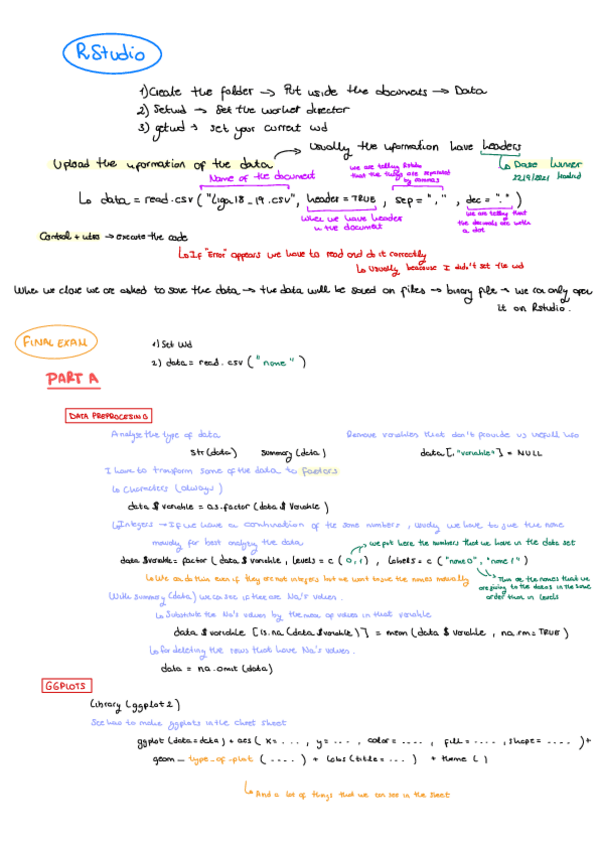 RStudio
1) Create the folder → Put inside the documents → Data
2) Setwd → Set the worker director
3) getwd → set your current wd
Usually the information have headers
Upload the information of the data
Date Winner
22/9/2021 Madrid
Name of the document
We are telling RStudio
that the things are separated
by commas
data = read.csv ("Liga18_19.csv", header = TRUE , sep = "," , dec = ".")
When we have header
in the document
We are telling that
the decimals are with
a dot
Control + intro → execute the code
If "Error" appears we have to read and do it correctly
Usually beacause I didn't set the wd
When we close we are asked to save the data → the data will be saved on files → binary file → we can only open
it on RStudio.
FINAL EXAM
1) Set Wd
2) data = read.csv ("name")
PART A
DATA PREPROCESING
Analyse the type of data
Remove variables that don't provide us usefull info
str (data) summary (data)
data [,"variable"] = NULL
I have to transform some of the data to factors
Characters (always)
data $ variable = as.factor (data $ Variable)
Integers → If we have a combination of the same numbers, usually we have to give the name
manually for best analyzing the data
we put here the numbers that we have in the data set
data $variable = factor (data $ variable , levels = c (0,1) , labels = c ("name0", "name1")
We can do this even if they are not integers but we want to give the names manually
This are the names that we
are giving to the datas in the same
order than in levels
With summary (data) we can see if there are Na's values.
Substitute the Na's values by the mean of values in that variable
data $ variable [is.na (data $variable)] = mean (data $ variable , na.rm = TRUE)
for deleting the rows that have Na's values.
data = na.omit (data)
GGPLOTS
Library (ggplot2)
See how to make ggplots in the cheet sheet
ggplot (data = data) + aes ( x = ... , y = ... , color = .... , fill = .... , shape = .... ) +
geom _ type_of_plot ( .... ) + labs (title = ... ) + theme ( )
And a lot of things that we can see in the sheet